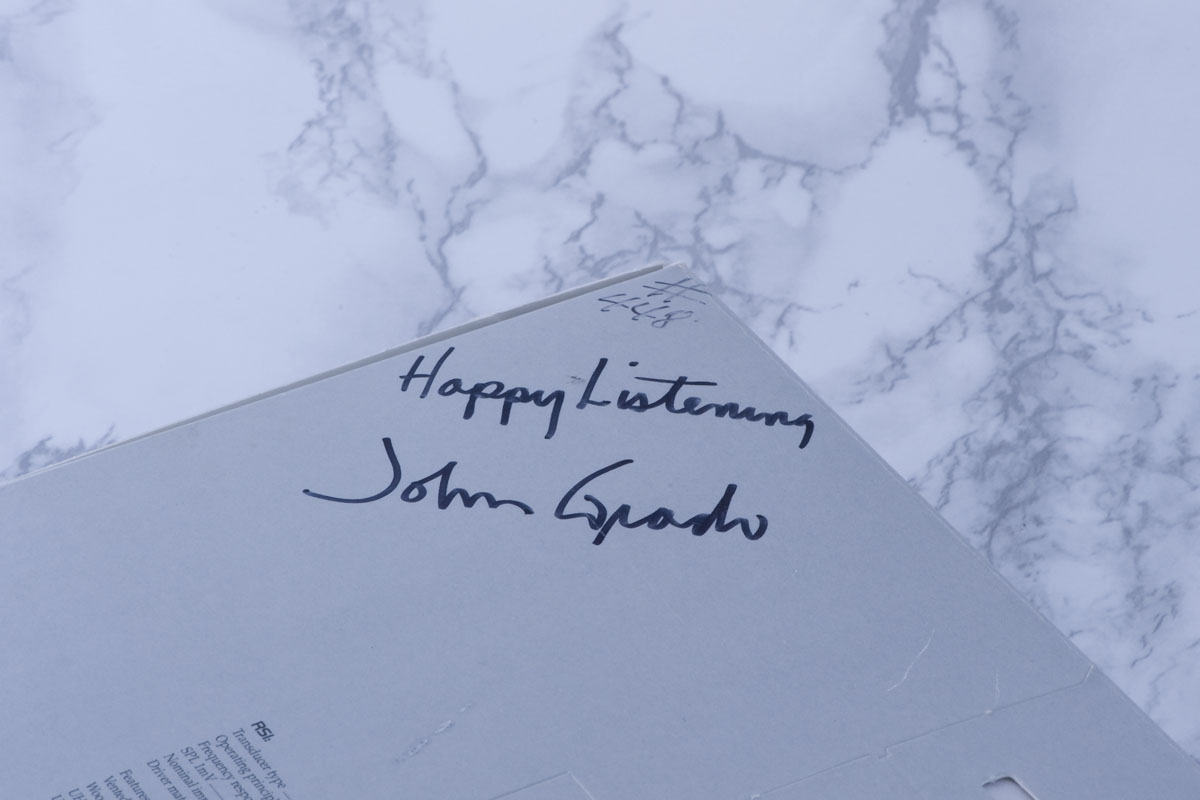 #
448
Happy Listening
John Grado
RS1:
Transducer type
Operating princip
Frequency resp
SPL 1mV
Nominal im
Driver mat
Features
Vented
Woo
UH